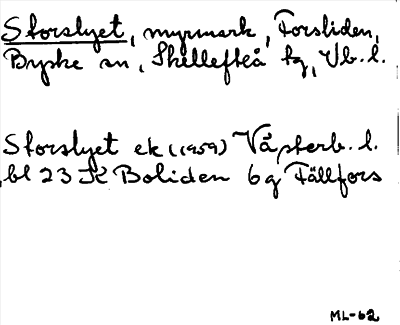 Storslyet, myrmark, Forsliden,
Byske sn, Skellefteå tg, Vb. l.
Storslyet ek (1959) Västerb. l.
bl 23 K Boliden 6g Fällfors
ML-62